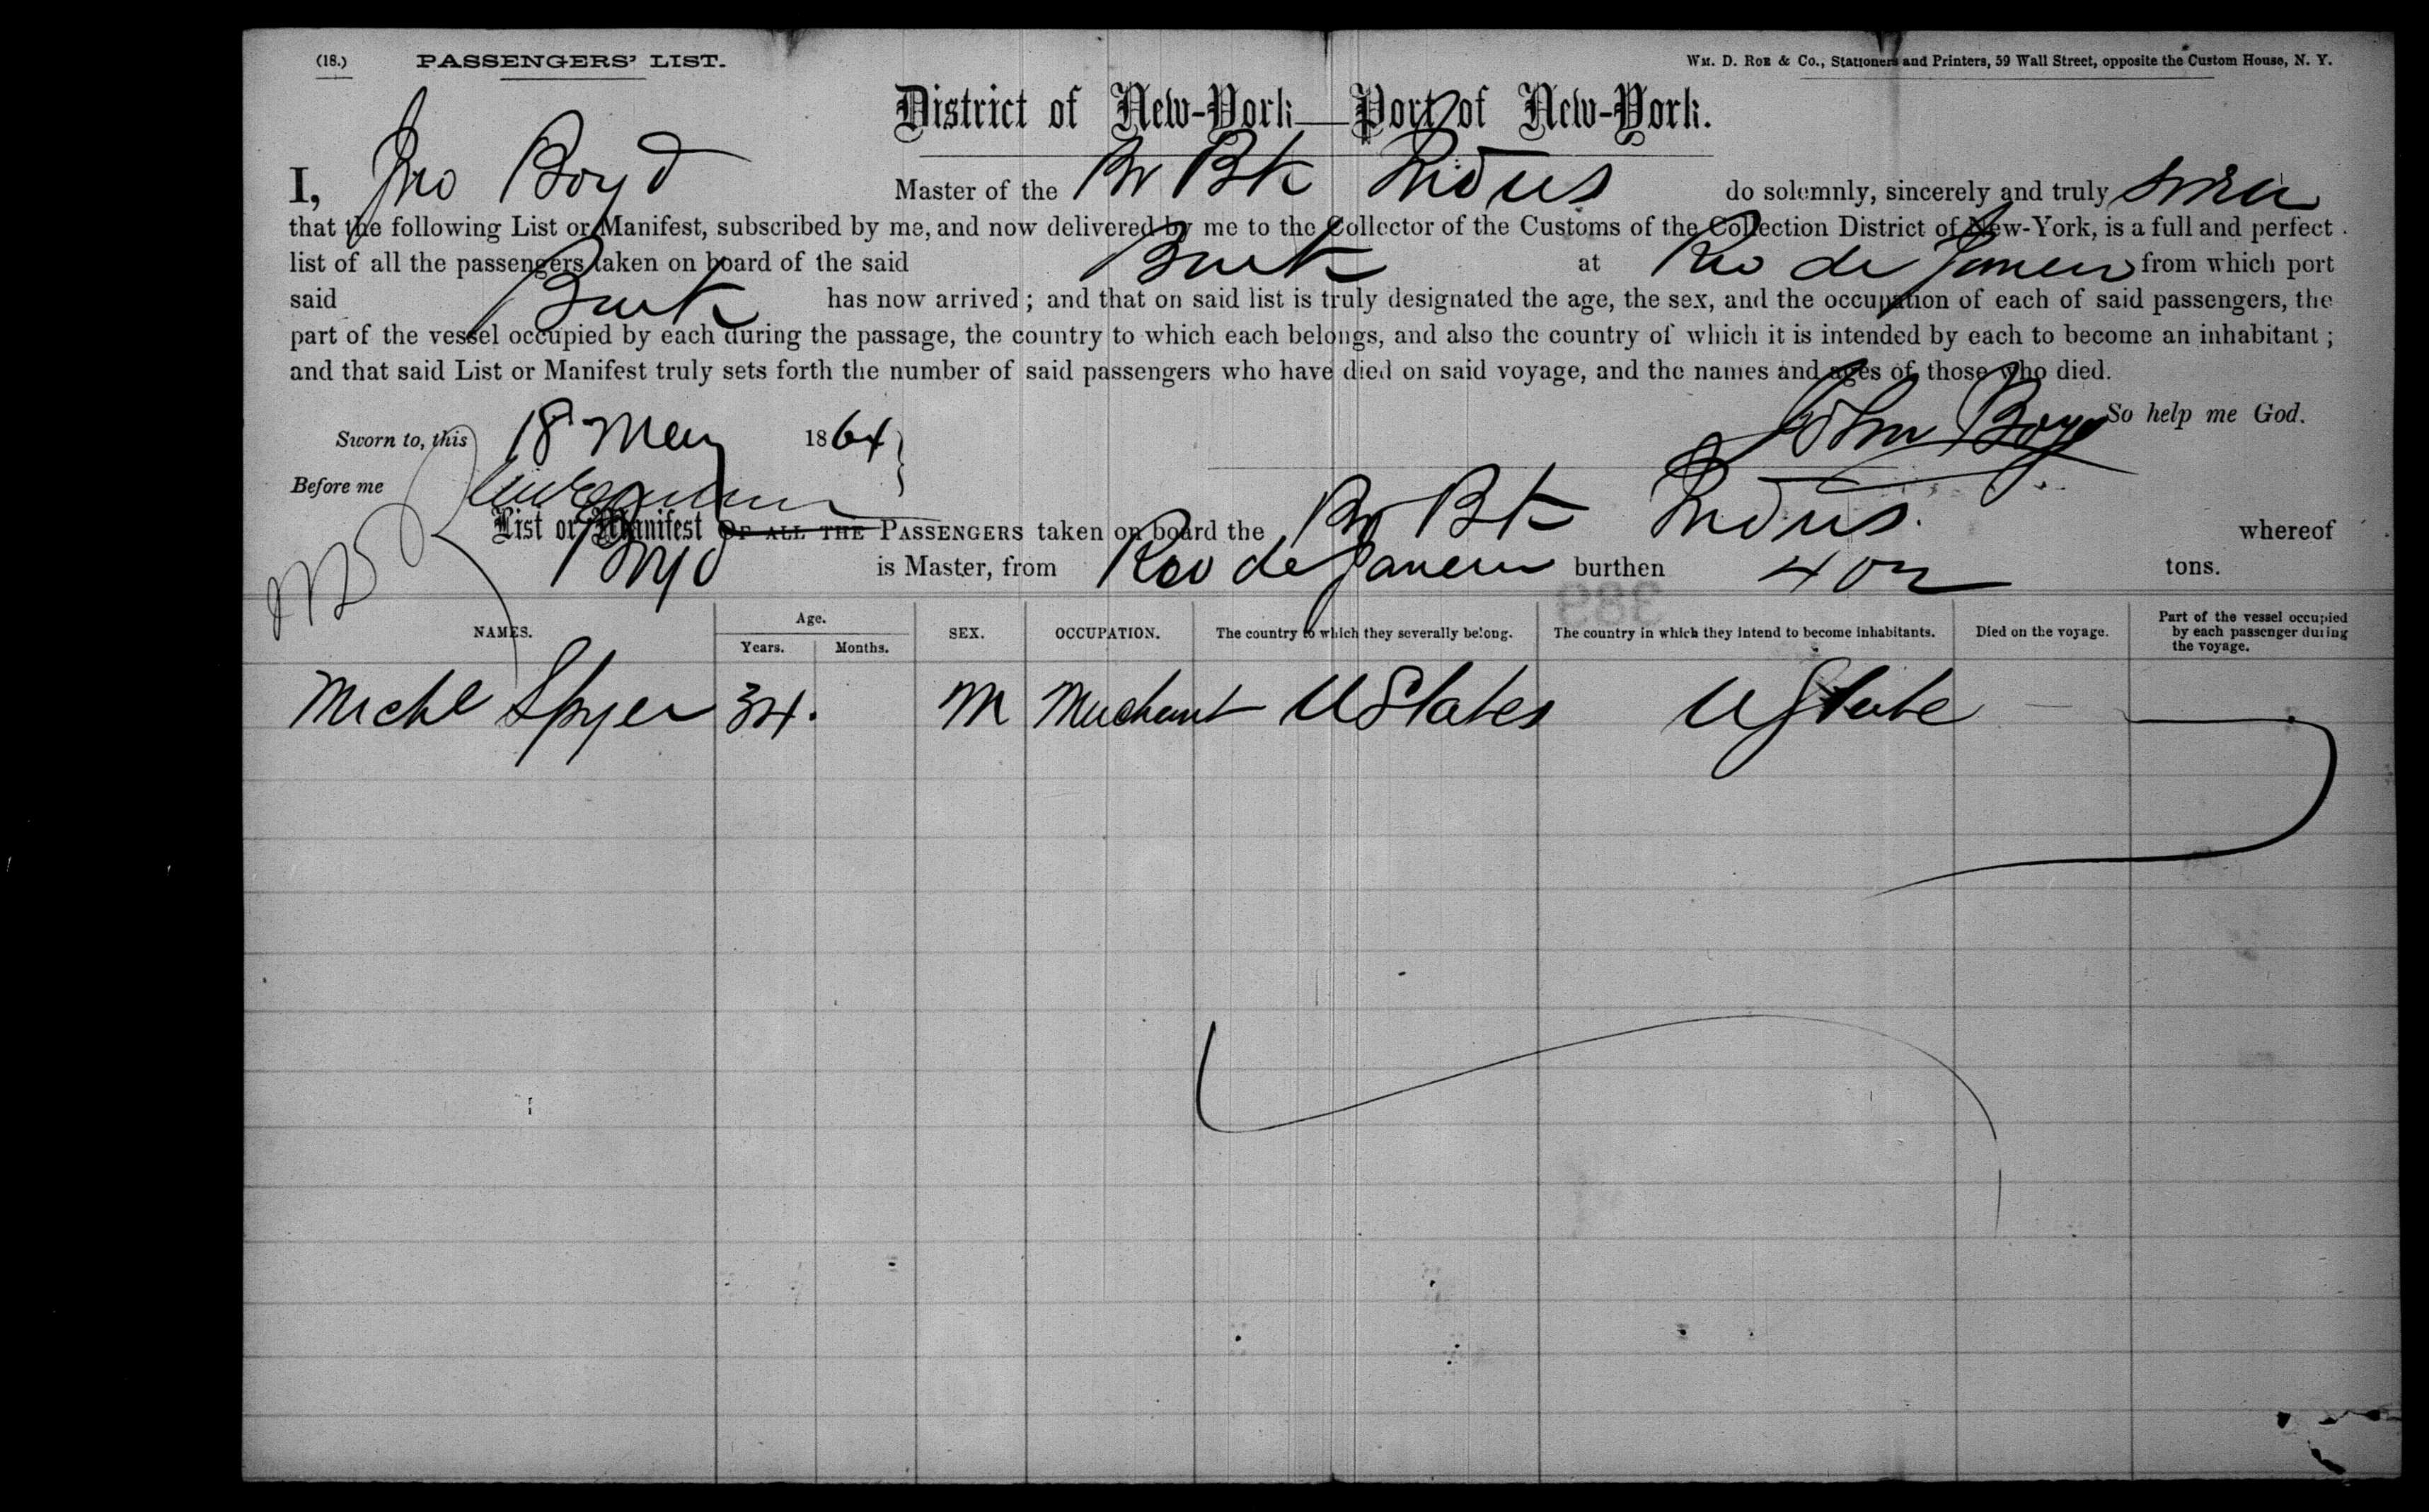 (18.) PASSENGERS' LIST. Wm. D. Roe & Co., Stationers and Printers, 59 Wall Street, opposite the Custom House, N. Y.
District of New-York—Port of New-York.
I, Jno Boyd Master of the Br Bk Indus do solemnly, sincerely and truly swear
that the following List or Manifest, subscribed by me, and now delivered by me to the Collector of the Customs of the Collection District of New-York, is a full and perfect
list of all the passengers taken on board of the said Bark at Rio de Janeiro from which port
said Bark has now arrived; and that on said list is truly designated the age, the sex, and the occupation of each of said passengers, the
part of the vessel occupied by each during the passage, the country to which each belongs, and also the country of which it is intended by each to become an inhabitant;
and that said List or Manifest truly sets forth the number of said passengers who have died on said voyage, and the names and ages of those who died.
John Boyd So help me God.
Sworn to, this 18 May 1864
Before me
List or Manifest of all the Passengers taken on board the Br Bk Indus whereof
Boyd is Master, from Rio de Janeiro burthen 402 tons.
389
NAMES. Age. Years. Months. SEX. OCCUPATION. The country to which they severally belong. The country in which they intend to become inhabitants. Died on the voyage. Part of the vessel occupied by each passenger during the voyage.
Michl Spyer 34. M Merchant U States U State —